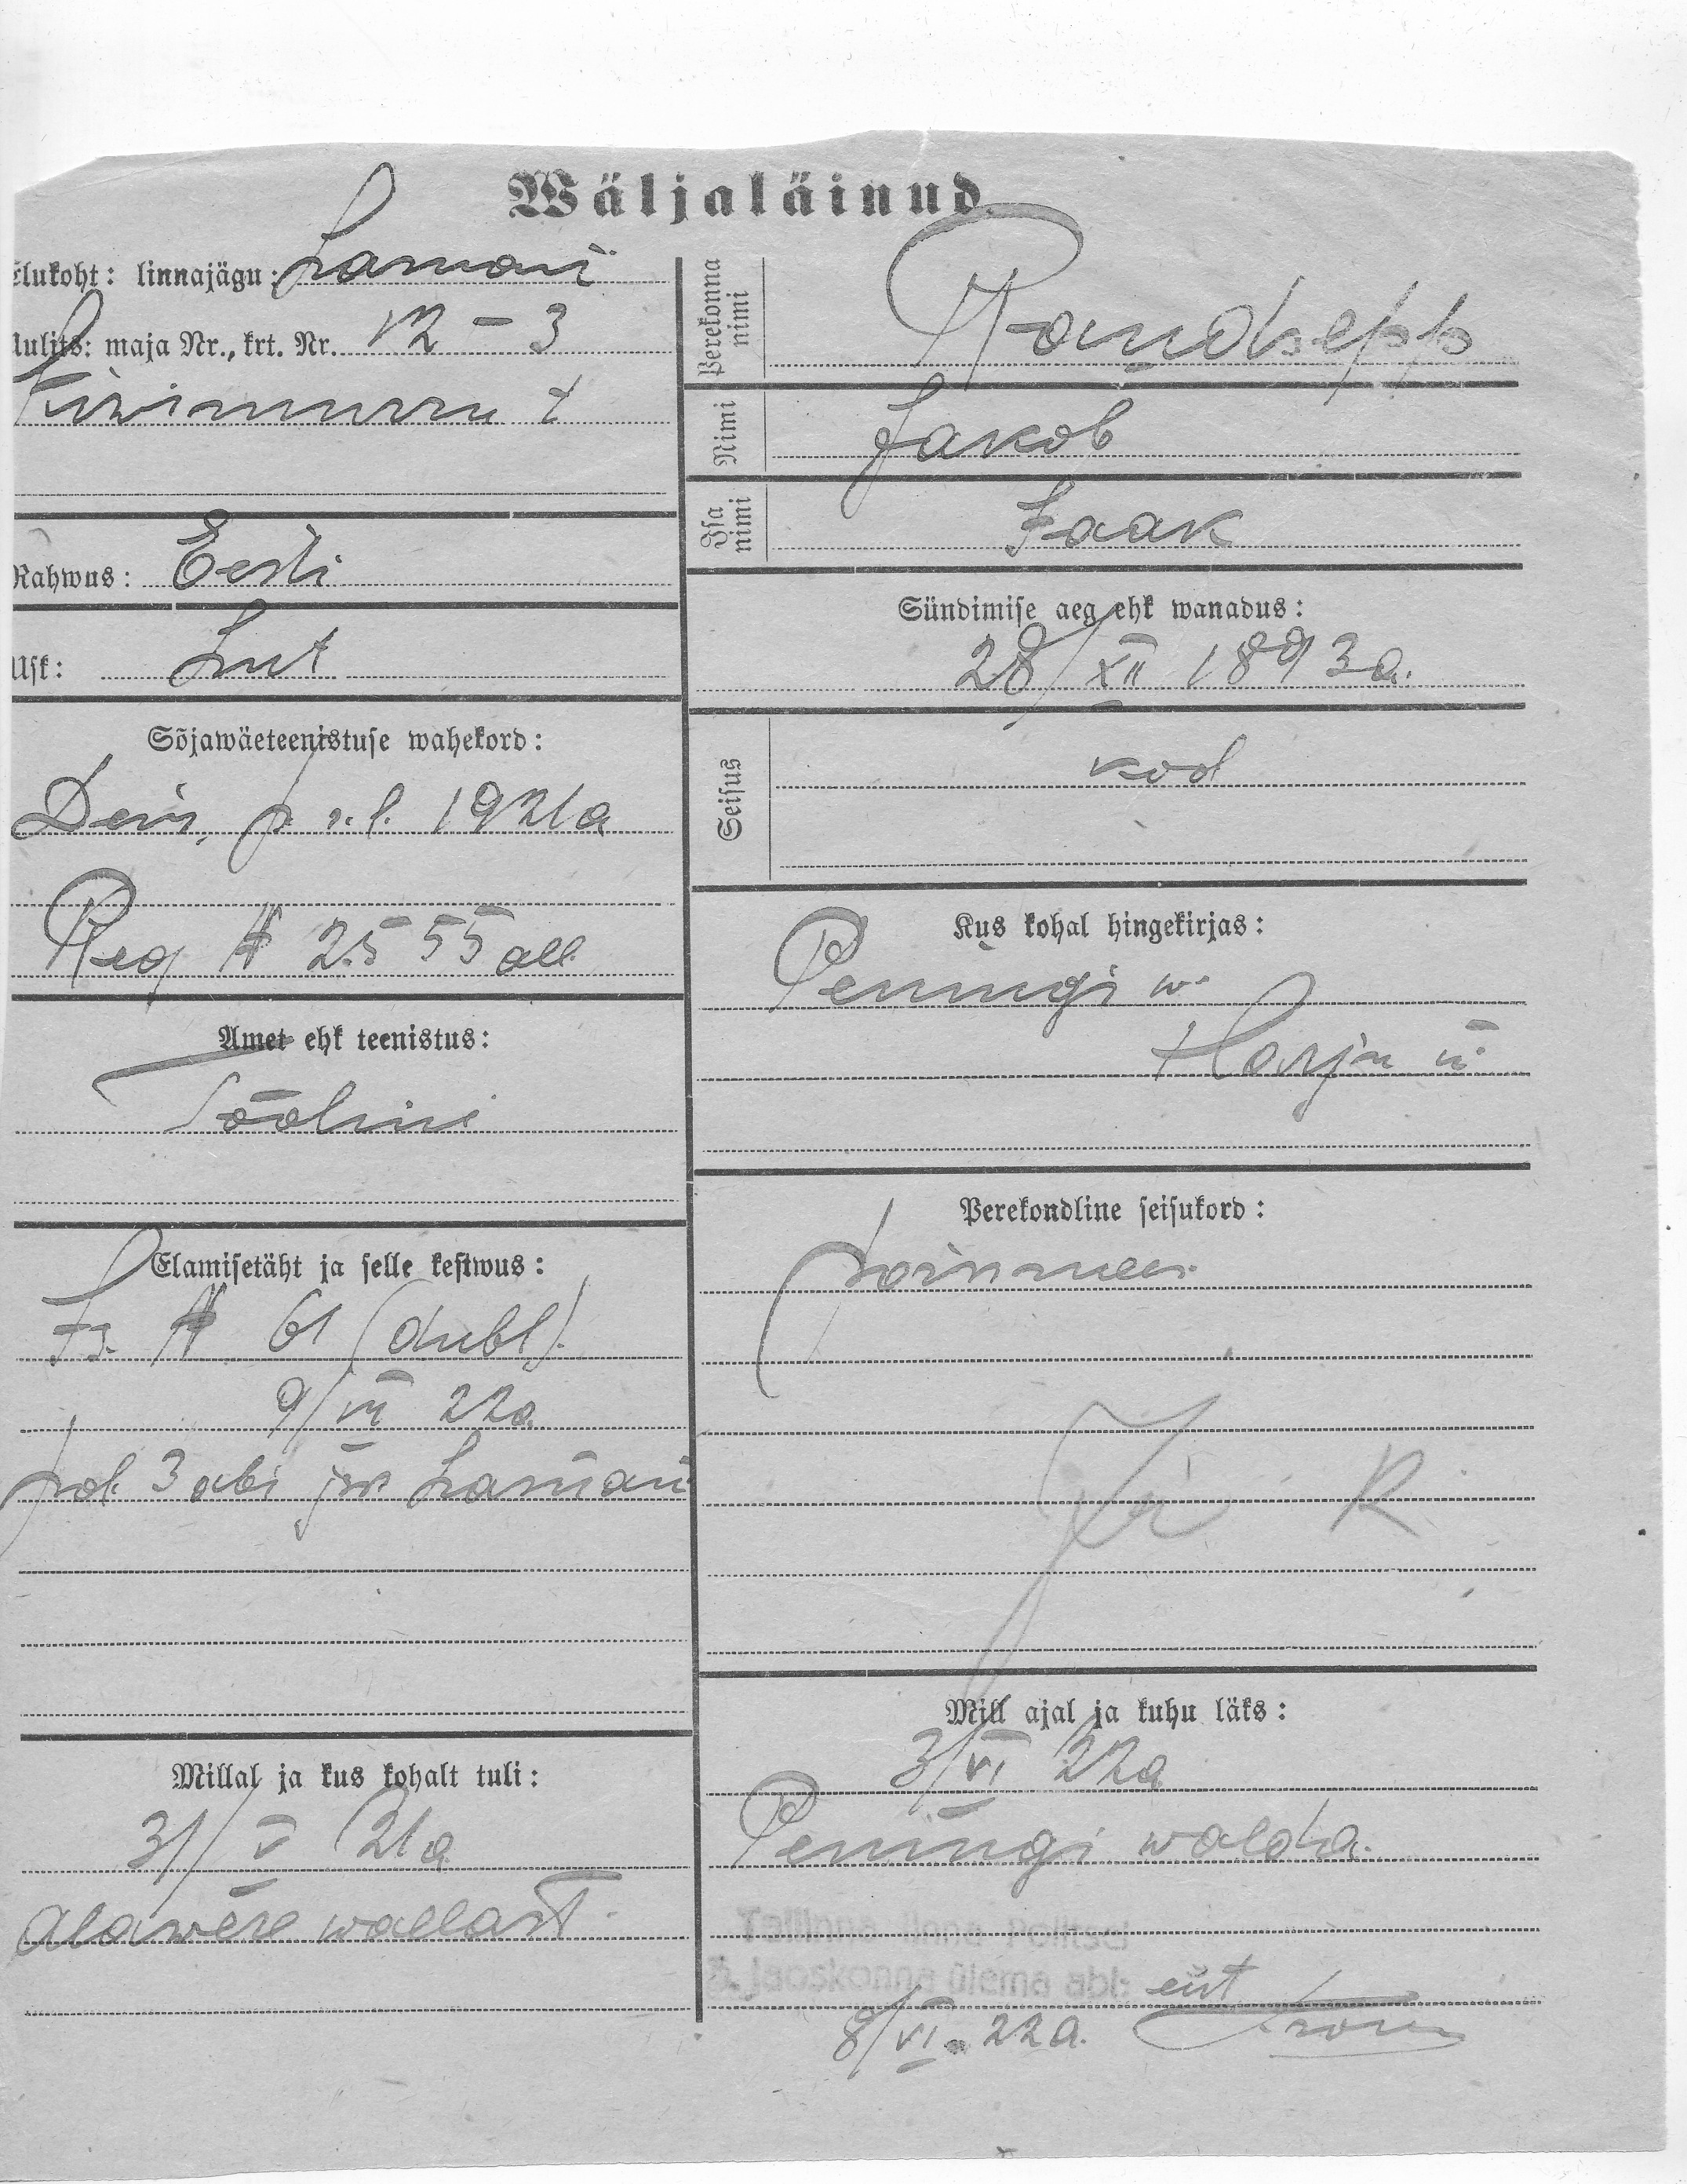 Wäljaläinud
Elukoht: linnajägu: Lasnam
Uulits: maja Nr., krt. Nr. 12 – 3
Kiwimurru t
Rahwus: Eesti
Usk: Lut
Sõjawäeteenistuse wahekord:
1921a
Reg № 2555 all
Amet ehk teenistus:
Tööline
Elamisetäht ja selle kestwus:
Is. № 61 (dubl).
22a
pol. 3 abi jsk Lasnam
Millal ja kus kohalt tuli:
31/V 21a
Alawere wallast
Perekonna nimi
Randsepp
Nimi
Jakob
Isa nimi
Jaak
Sündimise aeg ehk wanadus:
28/XII 1893a.
Seisus
kod
Kus kohal hingekirjas:
Peningi w.
Harju
Perekondline seisukord:
poissmees
R
Mill ajal ja kuhu läks:
3/VI 22a
Peningi walda.
Tallinna linna Politsei
Jaoskonna ülema abi
8/VI 22a.